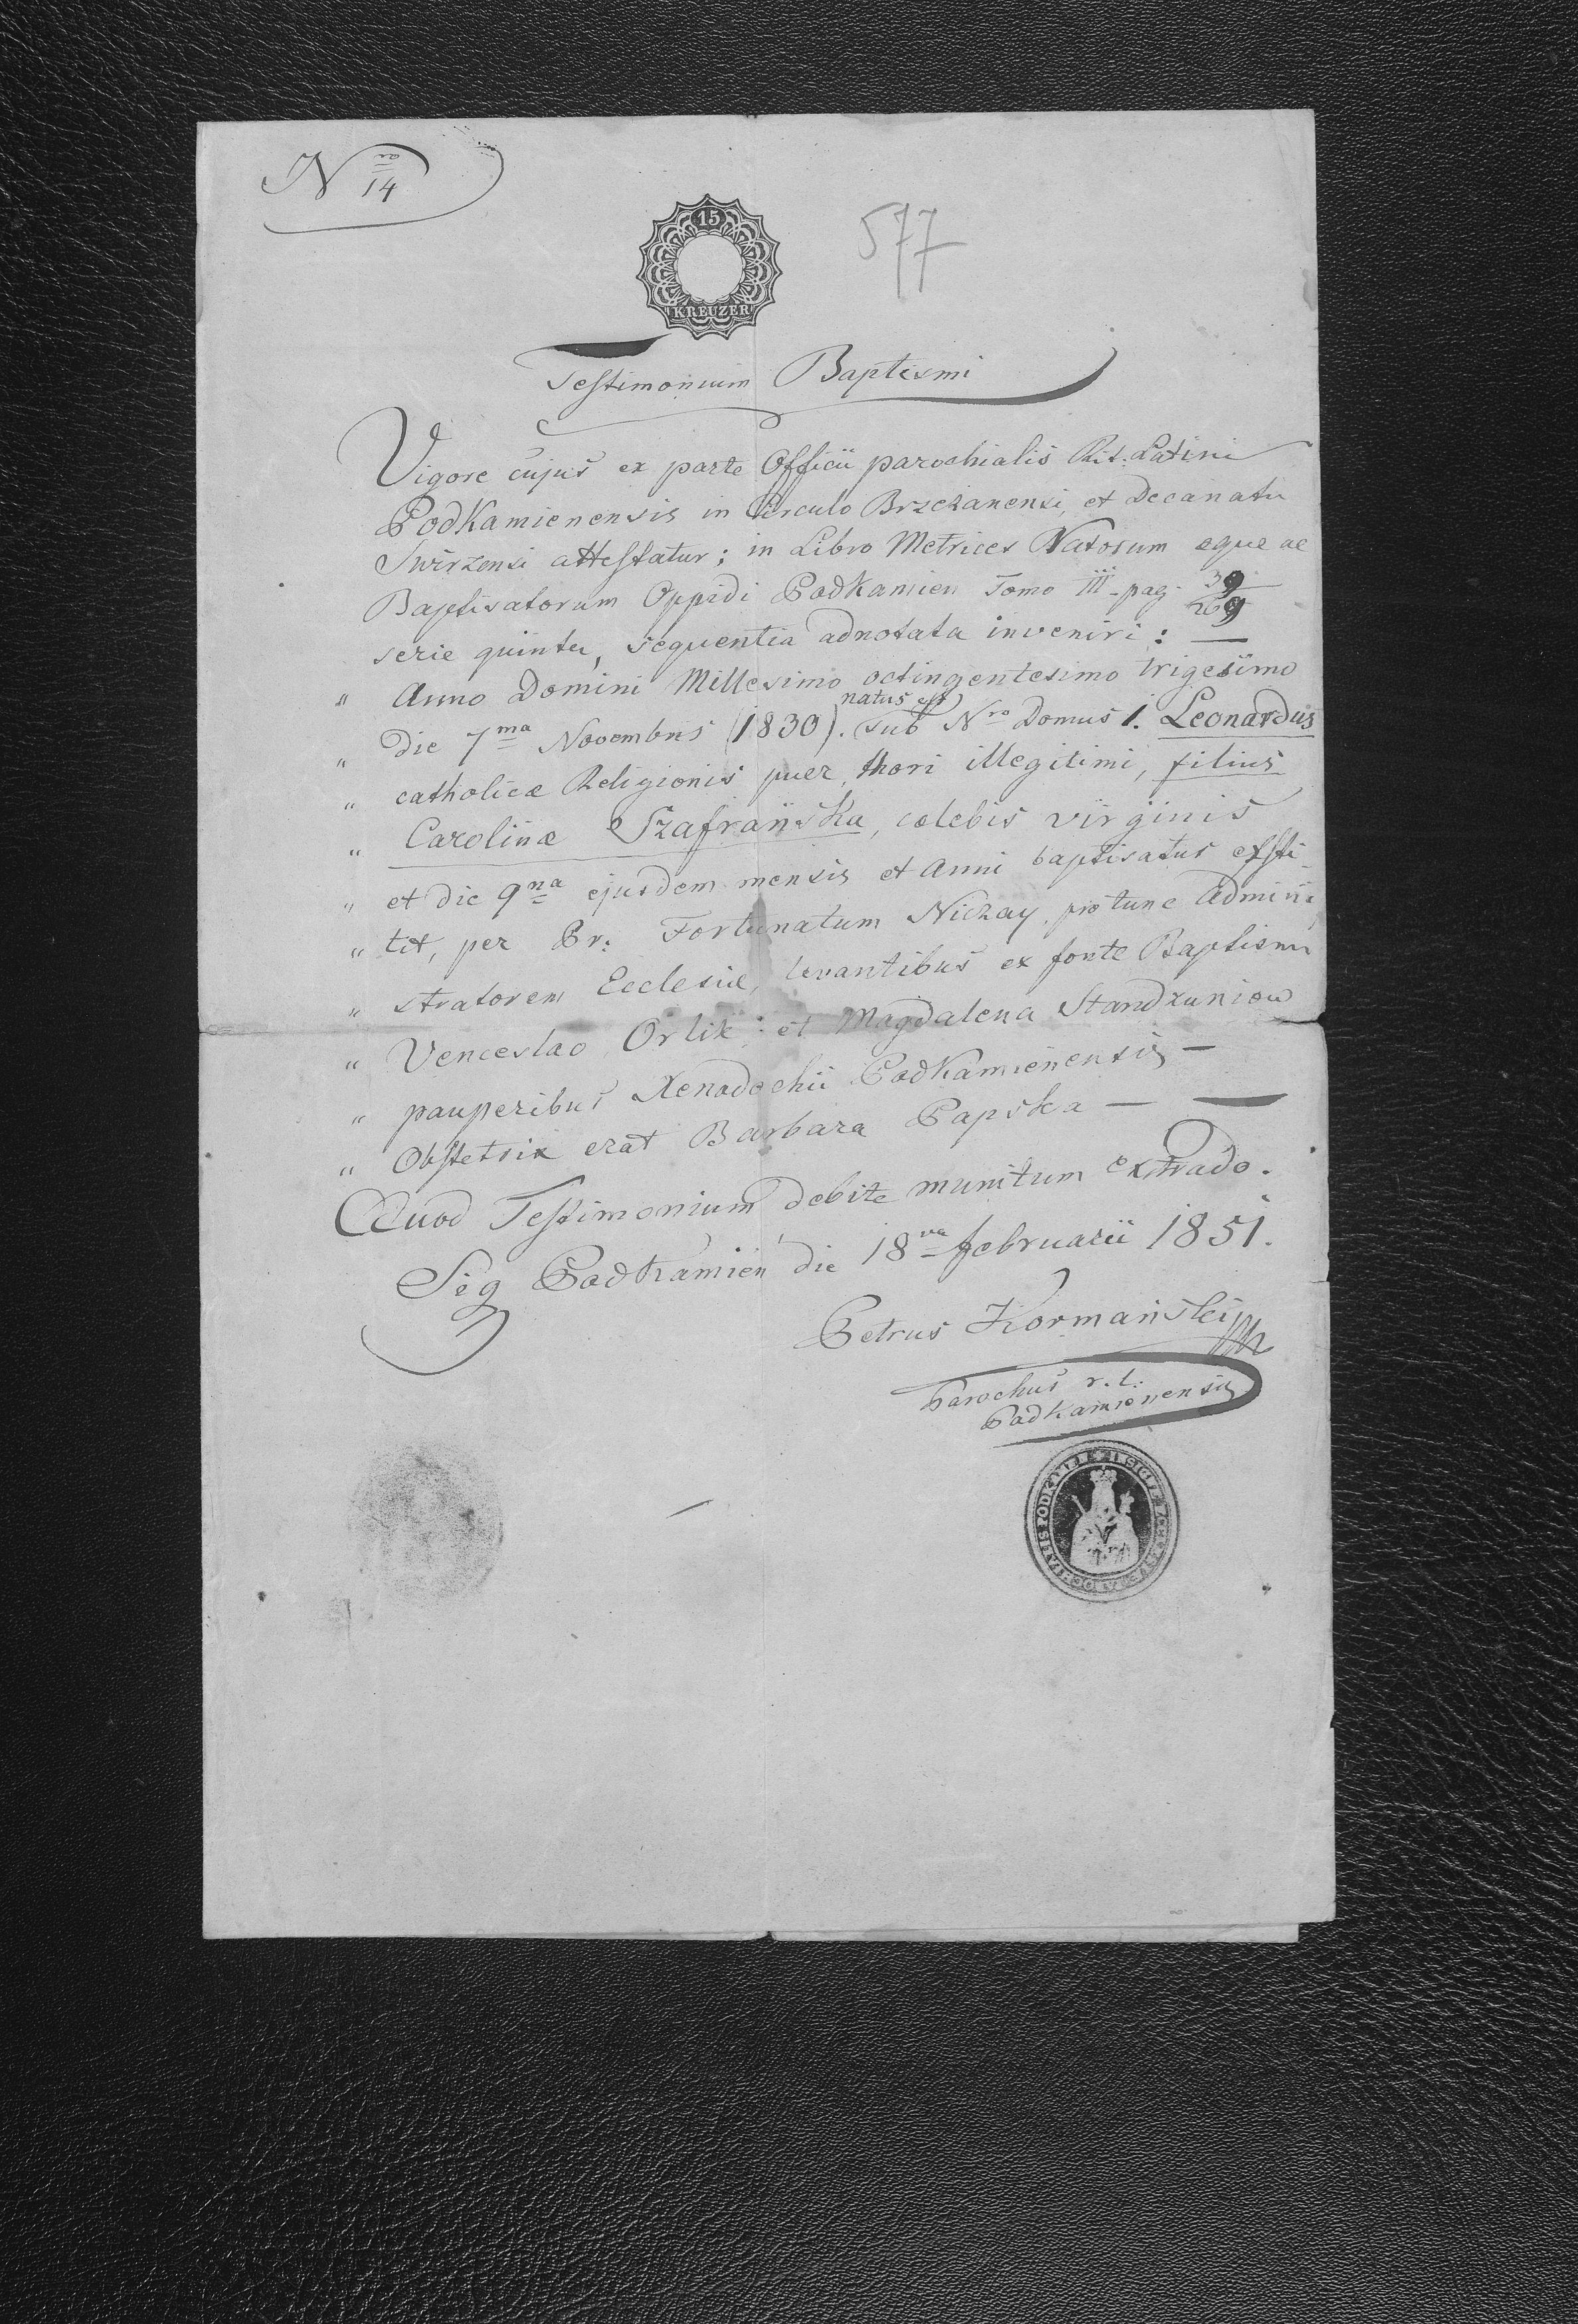 Nro 14
577
15
KREUZER
Testimonium Baptismi
Vigore cujus ex parte Officii parochialis Rit. Latini
Podkamienensis in Circulo Brzezanensi, et Decanatu
Swirzensi attestatur; in Libro Metrices Natorum eque ac
Baptisatorum Oppidi Podkamien Tomo III. pag. 39
serie quinta, sequentia adnotata inveniri:
" Anno Domini Millesimo octingentesimo trigesimo
natus est
" die 7ma Novembris (1830). sub Nro Domus 1. Leonardus
" catholicæ Religionis puer, thori illegitimi, filius
" Carolinæ Szafrańska, celebis virginis
" et die 9na ejusdem mensis et Anni baptisatus exsti-
" tit, per Pr: Fortunatum Niczay, protunc Admini-
" stratorem Ecclesiæ, levantibus ex fonte Baptismi
" Venceslao Orlik: et Magdalena Standzuniow
" pauperibus Xenodochii Podkamienensis —
" Obstetrix erat Barbara Papska —
Quod Testimonium debite munitum extrado.
Sig Podkamień die 18va februarii 1851.
Petrus Kormański
Parochus r. l.
Podkamienensis